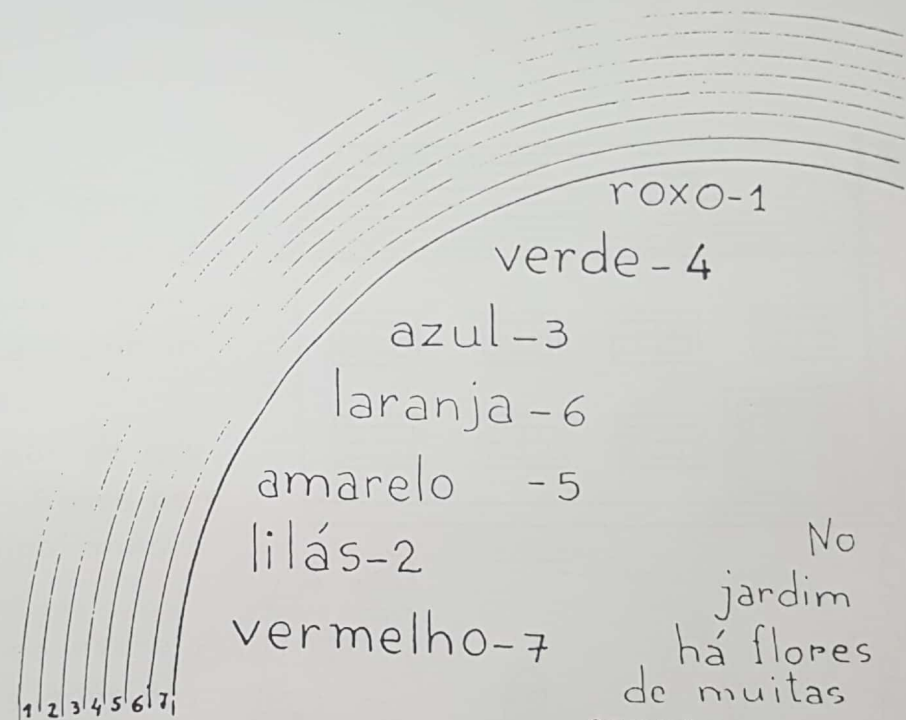 roxo-1
verde-4
azul-3
laranja-6
amarelo -5
lilás-2
vermelho-7
No
jardim
há flores
de muitas
1 2 3 4 5 6 7